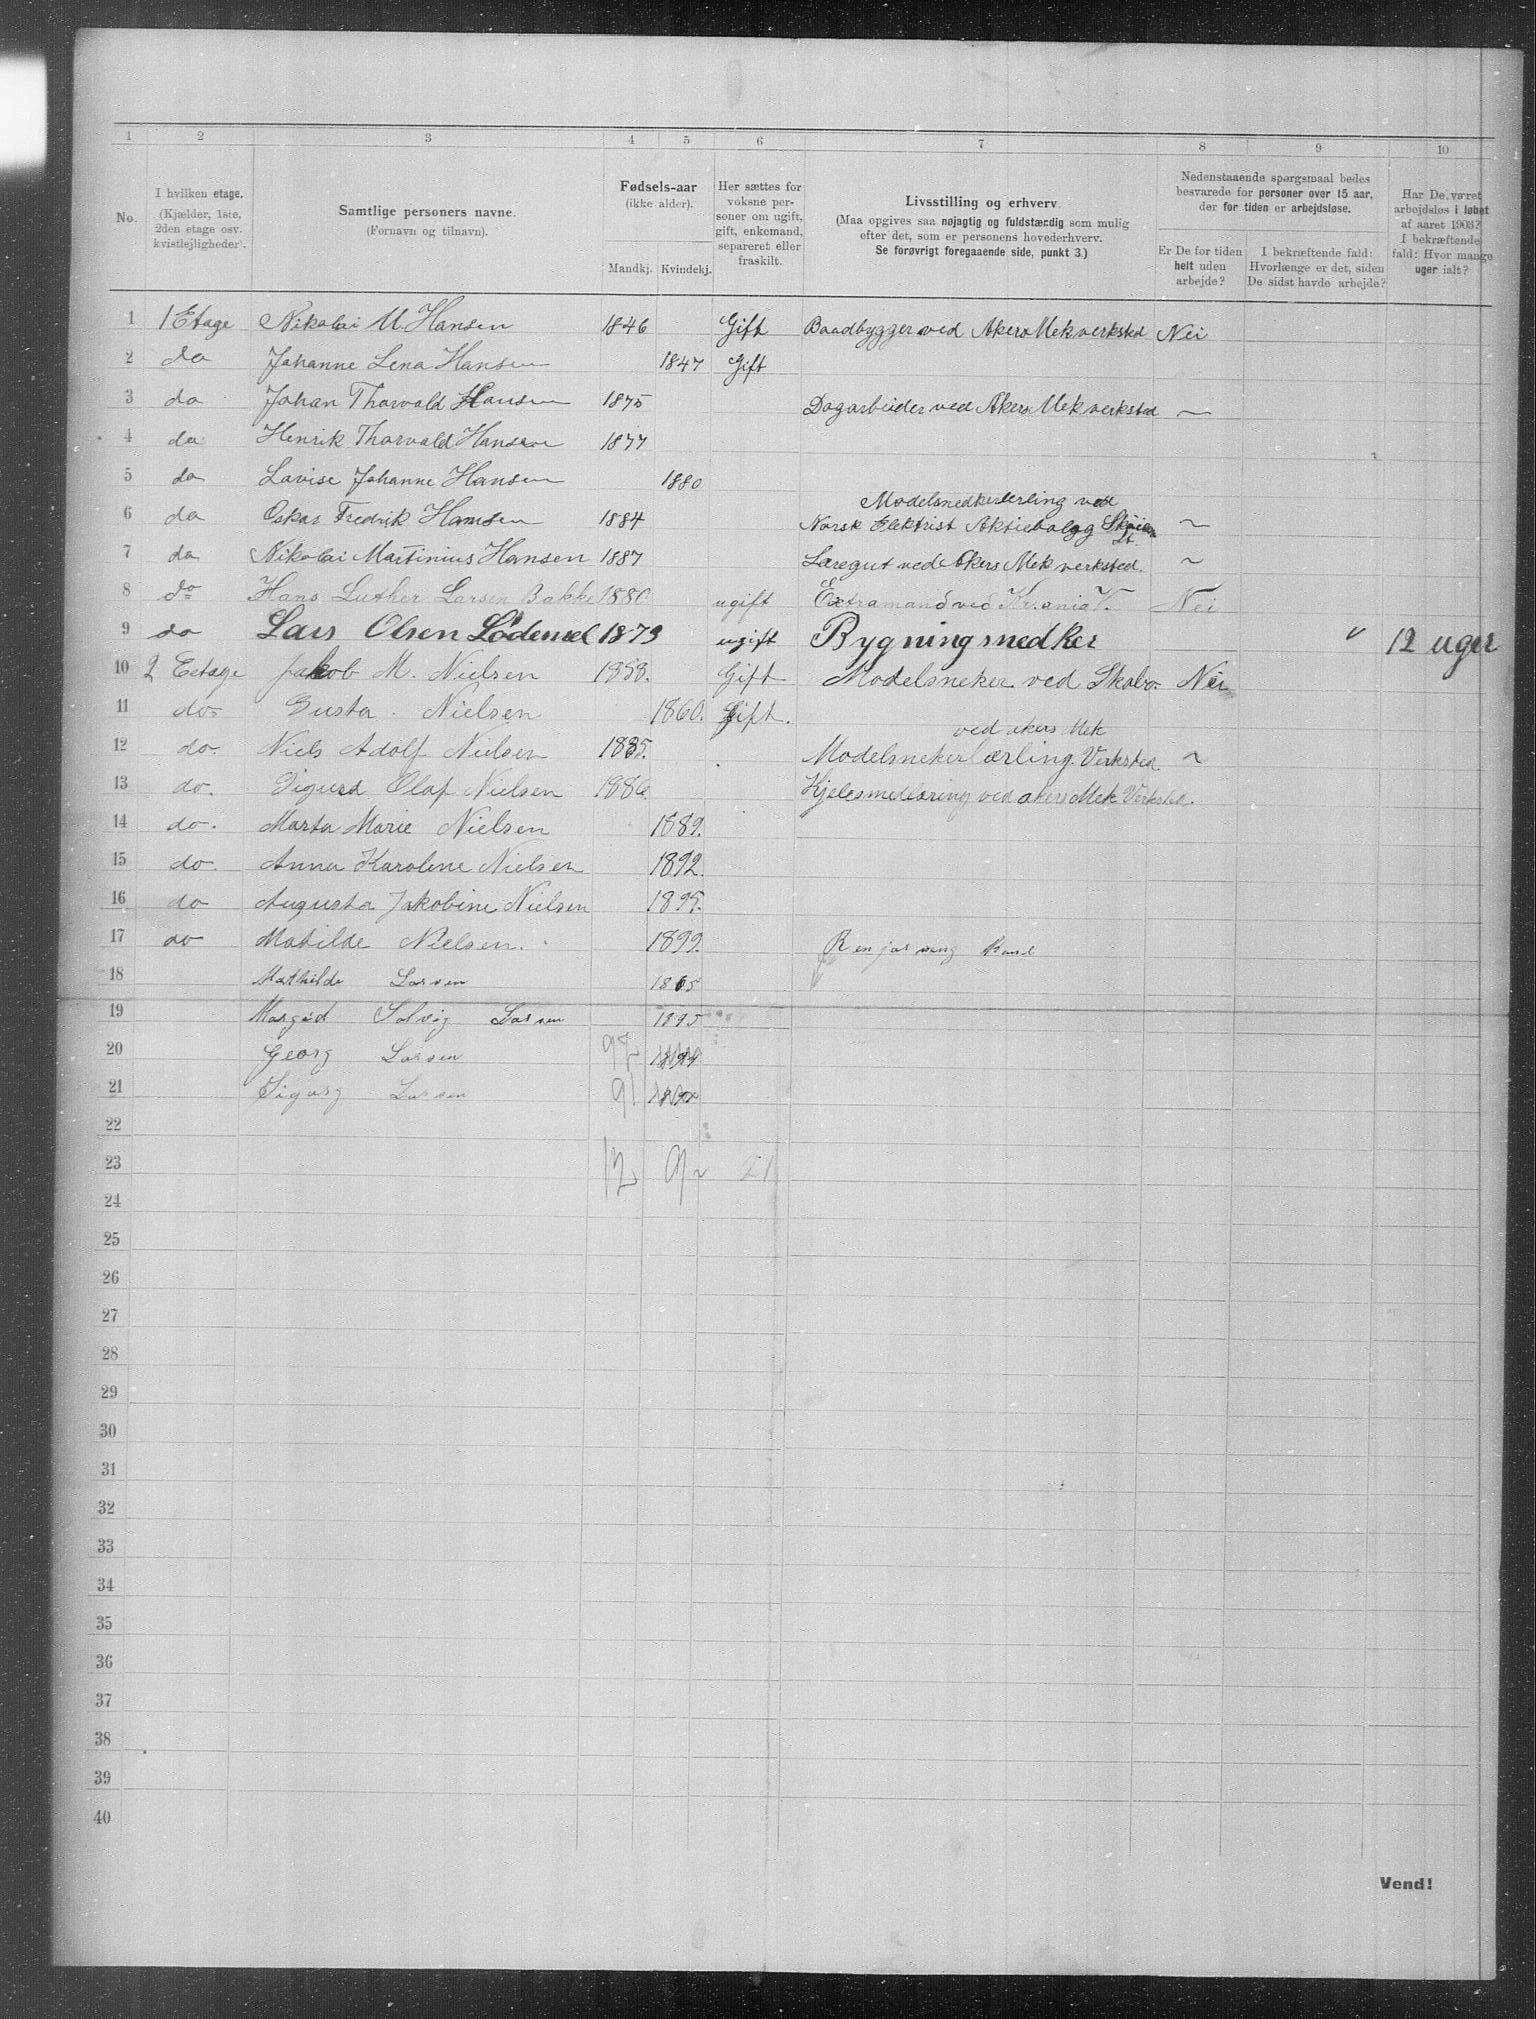 1 2 3 4 5 6 7 8 9 10
No.
I hvilken etage.
(Kjælder, 1ste, 2den etage osv. kvistlejligheder).
Samtlige personers navne.
(Fornavn og tilnavn).
Fødsels-aar
(ikke alder).
Mandkj. Kvindekj.
Her sættes for voksne personer om ugift, gift, enkemand, separeret eller fraskilt.
Livsstilling og erhverv.
(Maa opgives saa nøjagtig og fuldstændig som mulig
efter det, som er personens hovederhverv.
Se forøvrigt foregaaende side, punkt 3.)
Nedenstaaende spørgsmaal bedes
besvarede for personer over 15 aar,
der for tiden er arbejdsløse.
Er De for tiden helt uden arbejde?
I bekræftende fald: Hvorlænge er det, siden De sidst havde arbejde?
Har De været arbejdsløs i løbet af aaret 1903? I bekræftende fald: Hvor mange uger ialt?
1 1 Etage Nikolai M. Hansen 1846 Gift Baadbygger ved Akers Mek verksted Nei
2 do Johanne Lena Hansen 1847 Gift
3 do Johan Thorvald Hansen 1875 Dagarbeider ved Akers Mek verksted ~
4 do Henrik Thorvald Hansen 1877
5 do Lovise Johanne Hansen 1880
Modelsnedkerlerling ved
6 do Oskar Fredrik Hansen 1884 Norsk Elektrist Aktiebolag Skøien ~
7 do Nikolai Martinius Hansen 1887 Læregut ved Akers Mek verksted. ~
8 do Hans Luther Larsen Bakke 1880 ugift Extramand ved Kr.ania V. Nei
9 do Lars Olsen Lödemel 1873 ugift Bygningsnedker " 12 uger
10 2 Eetage Jakob M. Nielsen 1858. Gift Modelsneker ved Skabo. Nei
11 do Gusta Nielsen 1860. Gift.
ved akers Mek
12 do. Niels Adolf Nielsen 1885. Modelsneker lærling. Verksted ~
13 do. Sigurd Olaf Nielsen 1886 Kjelesmedlæring ved akers Mek Verksted.
14 do. Marta Marie Nielsen 1889.
15 do. Anna Karoline Nielsen 1892.
16 do Augusta Jakobine Nielsen 1895.
17 do Matilde Nielsen. 1899.
Renjøring Kone
18 Mathilde Larsen 1865
19 Margid Solvig Larsen 1895
20 Georg Larsen 1894
21 Sigurg Larsen 91
22
23 12 9 21
24
25
26
27
28
29
30
31
32
33
34
35
36
37
38
39
40
Vend!